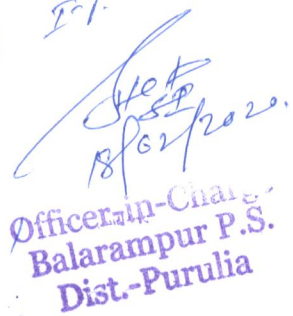 SI
18/02/2020.
Officer-in-Charge
Balarampur P.S.
Dist.-Purulia